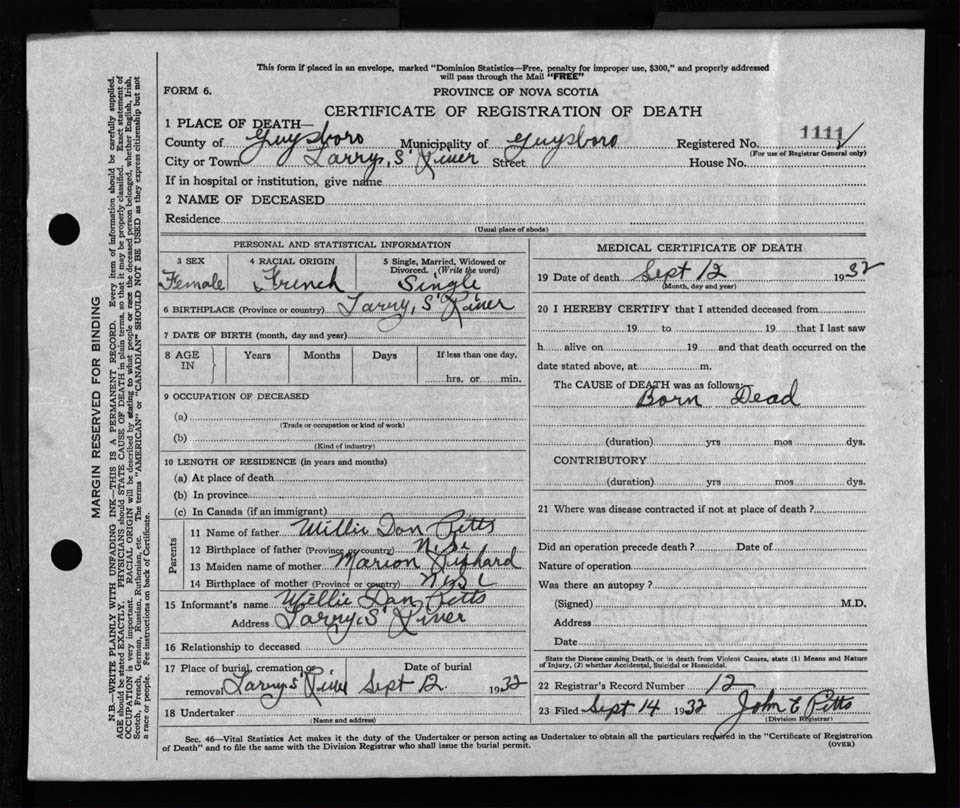 This form if placed in an envelope, marked "Dominion Statistics—Free, penalty for improper use, $300," and properly addressed
will pass through the Mail "FREE"
FORM 6.
PROVINCE OF NOVA SCOTIA
CERTIFICATE OF REGISTRATION OF DEATH
1 PLACE OF DEATH—
County of Guysboro Municipality of Guysboro Registered No. 1111
(For use of Registrar General only)
City or Town Larry,S' River Street House No.
If in hospital or institution, give name
2 NAME OF DECEASED
Residence
(Usual place of abode)
PERSONAL AND STATISTICAL INFORMATION
3 SEX 4 RACIAL ORIGIN 5 Single, Married, Widowed or
Divorced. (Write the word)
Female French Single
6 BIRTHPLACE (Province or country) Larry,S' River
7 DATE OF BIRTH (month, day and year)
8 AGE IN Years Months Days If less than one day,
hrs. or min.
9 OCCUPATION OF DECEASED
(a)
(Trade or occupation or kind of work)
(b)
(Kind of industry)
10 LENGTH OF RESIDENCE (in years and months)
(a) At place of death
(b) In province
(c) In Canada (if an immigrant)
Parents
11 Name of father Willie Dan Pitts
12 Birthplace of father (Province or country)
13 Maiden name of mother Marion
14 Birthplace of mother (Province or country)
15 Informant's name Willie Dan Pitts
Address Larry,S' River
16 Relationship to deceased
17 Place of burial, cremation or Date of burial
removal Larry,S' River Sept 12 1932
18 Undertaker
(Name and address)
MEDICAL CERTIFICATE OF DEATH
19 Date of death Sept 12 1932
(Month, day and year)
20 I HEREBY CERTIFY that I attended deceased from
19 to 19 that I last saw
h alive on 19 and that death occurred on the
date stated above, at m.
The CAUSE of DEATH was as follows:
Born Dead
(duration) yrs mos dys.
CONTRIBUTORY
(duration) yrs mos dys.
21 Where was disease contracted if not at place of death?
Did an operation precede death? Date of
Nature of operation
Was there an autopsy?
(Signed) M.D.
Address
Date
State the Disease causing Death, or in death from Violent Causes, state (1) Means and Nature
of Injury, (2) whether Accidental, Suicidal or Homicidal.
22 Registrar's Record Number 12
23 Filed Sept 14 1932 John C Pitts
(Division Registrar)
Sec. 46—Vital Statistics Act makes it the duty of the Undertaker or person acting as Undertaker to obtain all the particulars required in the "Certificate of Registration
of Death" and to file the same with the Division Registrar who shall issue the burial permit. (OVER)
MARGIN RESERVED FOR BINDING
N.B.—WRITE PLAINLY WITH UNFADING INK—THIS IS A PERMANENT RECORD. Every item of information should be carefully supplied.
AGE should be stated EXACTLY. PHYSICIANS should STATE CAUSE OF DEATH in plain terms, so that it may be properly classified. Exact statement of
OCCUPATION is very important. RACIAL ORIGIN will be described by stating to what people or race the deceased person belonged, whether English, Irish,
Scotch, French, German, Russian, Ruthenian, etc. The terms "AMERICAN" or "CANADIAN" SHOULD NOT BE USED as they express citizenship but not
a race or people. Fee instructions on back of Certificate.